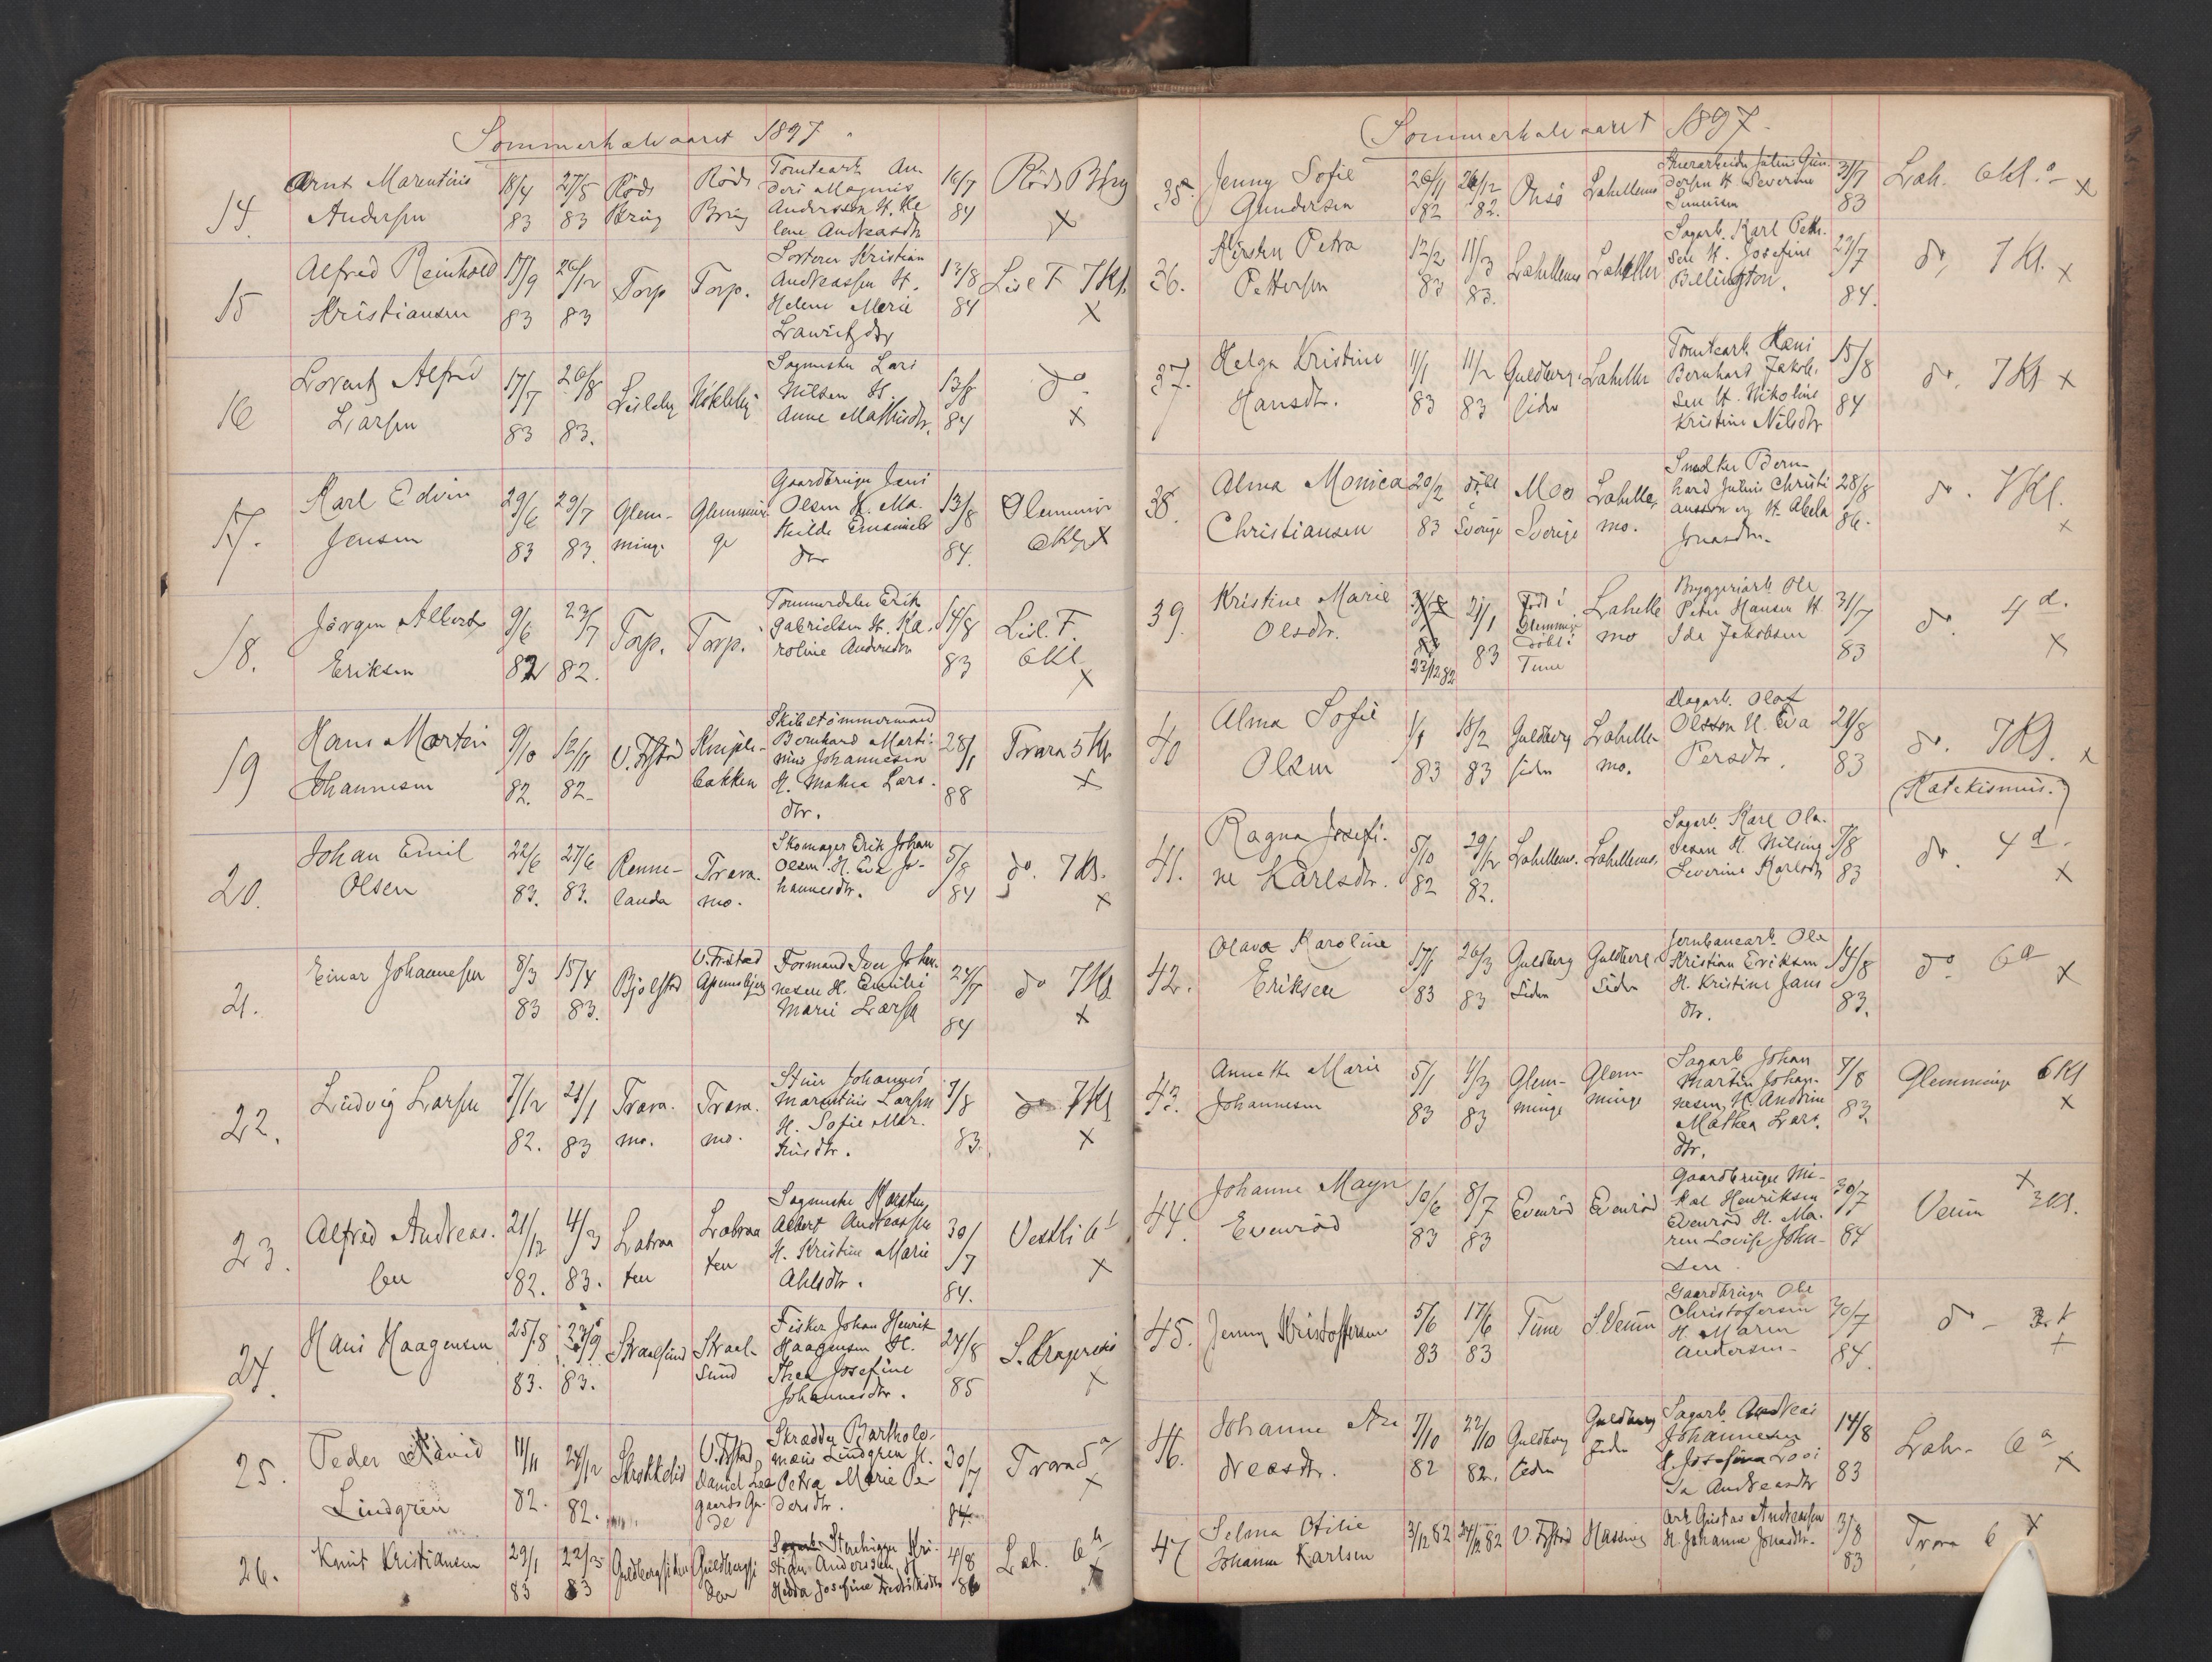 Sommerhalvaaret 1897.
14. Arnt Marentius Andersen 18/4 83 27/5 83 Röds Brüg Röds Brüg Tomtearb. Anders Magnus Anderssen H. Helene Andreasdtr 16/7 84 Röds Brüg x
15 Alfred Reinhold Kristiansen 17/9 83 26/12 83 Torp Torp. Sorterer Kristian Andreassen H. Helene Marie Lawritzdtr 13/8 84 Lisl F 7Kl. x
16 Lorentz Alfred Larsen 17/7 83 26/8 83. Lisleby Sagmester Lars Nilsen H. Anne Mathisdtr. 13/8 84 do x
17. Karl Edvin Jensen 29/6 83 29/7 83. Glemminge Glemminge Gaardbruger Jens Olsen H. Mathilde dtr 13/8 84. Glemminge x
18. Jörgen Albert Eriksen 9/6 82 23/7 82. Torp. Torp. Tömmerdeler Erik Gabrielsen H. Karoline Andersdtr 14/8 83 Lisl. F. 6Kl. x
19 Hans Martin Johannesen 9/10 82. 12/11 82- V. Frstad Kniplebakken Skibstömmermand Bernhard Martinius Johannesen H. Mathea Larsdtr. 28/1 88 Trara 5 Kl x
20. Johan Emil Olsen 22/6 83. 27/6 83. Rennelanda Traramo. Skomager Erik Johan Olsen. H. Eva Johannesdtr. 5/8 84 do. 7 Kl. x
21. Einar Johannessen 8/3 83 15/4 83. Bjölstad V. Frstad Formand Iver Johannesen H. Emilie Marie Larsen 24/7 84 do 7Kl x
22. Ludvig Larsen 7/12 82. 21/1 83 Traramo. Traramo. Stuer Johannes Marentius Larsen H. Sofie Martinsdtr. 7/8 83. do 7Kl x
23. Alfred Andreassen 21/12 82. 4/3 83. Labraaten Labraaten Sagmester Karsten Albert Andreassen H. Kristine Marie Ahlsdtr. 30/7 84. Vestli 6 x
24. Hans Haagensen 25/8 83. 23/9 83. Straalsund Straalsund Fisker Johan Henrik Haagensen H. Thea Josefine Johannesdtr. 24/8 85 S. Kragerø x
25. Peder David Lindgren 11/11 82. 24/12 82. V. Frstad Daniel Gade Skrædder Bartholomæus Lindgren H. Petra Marie Pedersdtr. 30/7 84. Trara 5a x
26. Knut Kristiansen 29/1 83 22/3 83 Guldbergsiden Guldbergsiden Stenhugger Kristian Anderssen H. Hedda Josefine Fredriksdtr 4/8 86 Lah. 6a x
Sommerhalvaaret 1897.
35. Jenny Sofie Gundersen 26/11 82 26/12 82. Onsö Lahellemo Stuerarbeider Julius Gundersen H. Severine 31/7 83 Lah. 6kl.a x
36. Kirsten Petra Pettersen 12/2 83 11/3 83. Lahellemo Lahellemo Sagarb. Karl Pettersen H. Josefine Bellington. 27/7 84. do, 7 Kl. x
37. Helga Kristine Hansdtr. 11/1 83 11/2 83 Guldbergsiden Lahelle Tomtearb. Hans Bernhard Jakobsen H. Nikoline Kristine Nilsdtr 15/8 84 do. 7 Kl x
38. Alma Monica Christiansen 20/2 83 döbt i Sverige Moo Sverige Lahellemo. Snedker Bernhard Julius Christiansson og H. Abela Jonasdtr. 28/8 86. do. 7 Kl. x
39. Kristine Marie Olsdtr. 23/12 82 21/1 83 Född i Glemminge döbt i Tune Lahellemo Bryggeriarb. Ole Peter Hansen H. Ida Jakobsen 31/7 83 do. 4 d. x
40 Alma Sofie Olsen 1/1 83 18/2 83 Guldbergsiden Lahellemo. Dagarb. Olof Olsson H. Eva Persdtr. 21/8 83 do. 7Kl. x
(Katekismus.)
41. Ragna Josefine Karlsdtr. 5/10 82 29/12 82. Lahellemo. Lahellemo. Sagarb. Karl Olavesen H. Severine Karlsdtr 7/8 83 do. 4 d. x
42. Olava Karoline Eriksen 17/1 83 26/3 83 Guldbergsiden Guldbergsiden Jernbanearb. Ole Kristian Eriksen H. Kristine Jansdtr. 14/8 83. do. 6a x
43. Annette Marie Johannesen 5/1 83 4/3 83 Glemminge Glemminge Sagarb. Johan Martin Johannesen, H. Andrine Mathea Larsdtr. 7/8 83 Glemminge 6 Kl x
44. Johanne Mayn Evenröd 10/6 83 8/7 83 Evenröd Evenröd Gaardbruger Mikal Henriksen Evenröd H. Maren Lovise Johnsen. 30/7 84 Veum 3Kl. x
45. Jenny Kristoffersen 5/6 83 17/6 83 Tune S. Veum Gaardbruger Ole Christofersen H. Maren Andersen- 30/7 84. do - 3. k x
46. Johanne Andreasdtr. 7/10 82 22/10 82. Guldbergsiden Guldbergsiden Sagarb. Andreas Johannesen H. Josefina Lovisa Andreasdtr 14/8 83 Lah- 6a x
47 Selma Otilie Johanne Karlsen 3/12 82 24/12 82 V. Frstad Hassing Arb. Gustav Andreassen H. Johanne Jonasdtr. 3/8 83 Trara 6 x